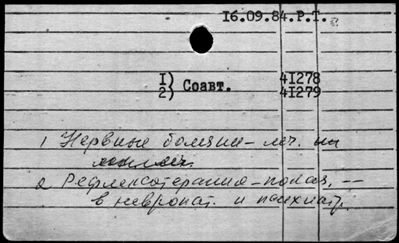 16.09.84.Р.Т.
1) Соавт. 41278
2) 41279
1 Нервные болезни – леч. 
2 Рефлексотерапия – показ. --
в невропат. и психиатр.